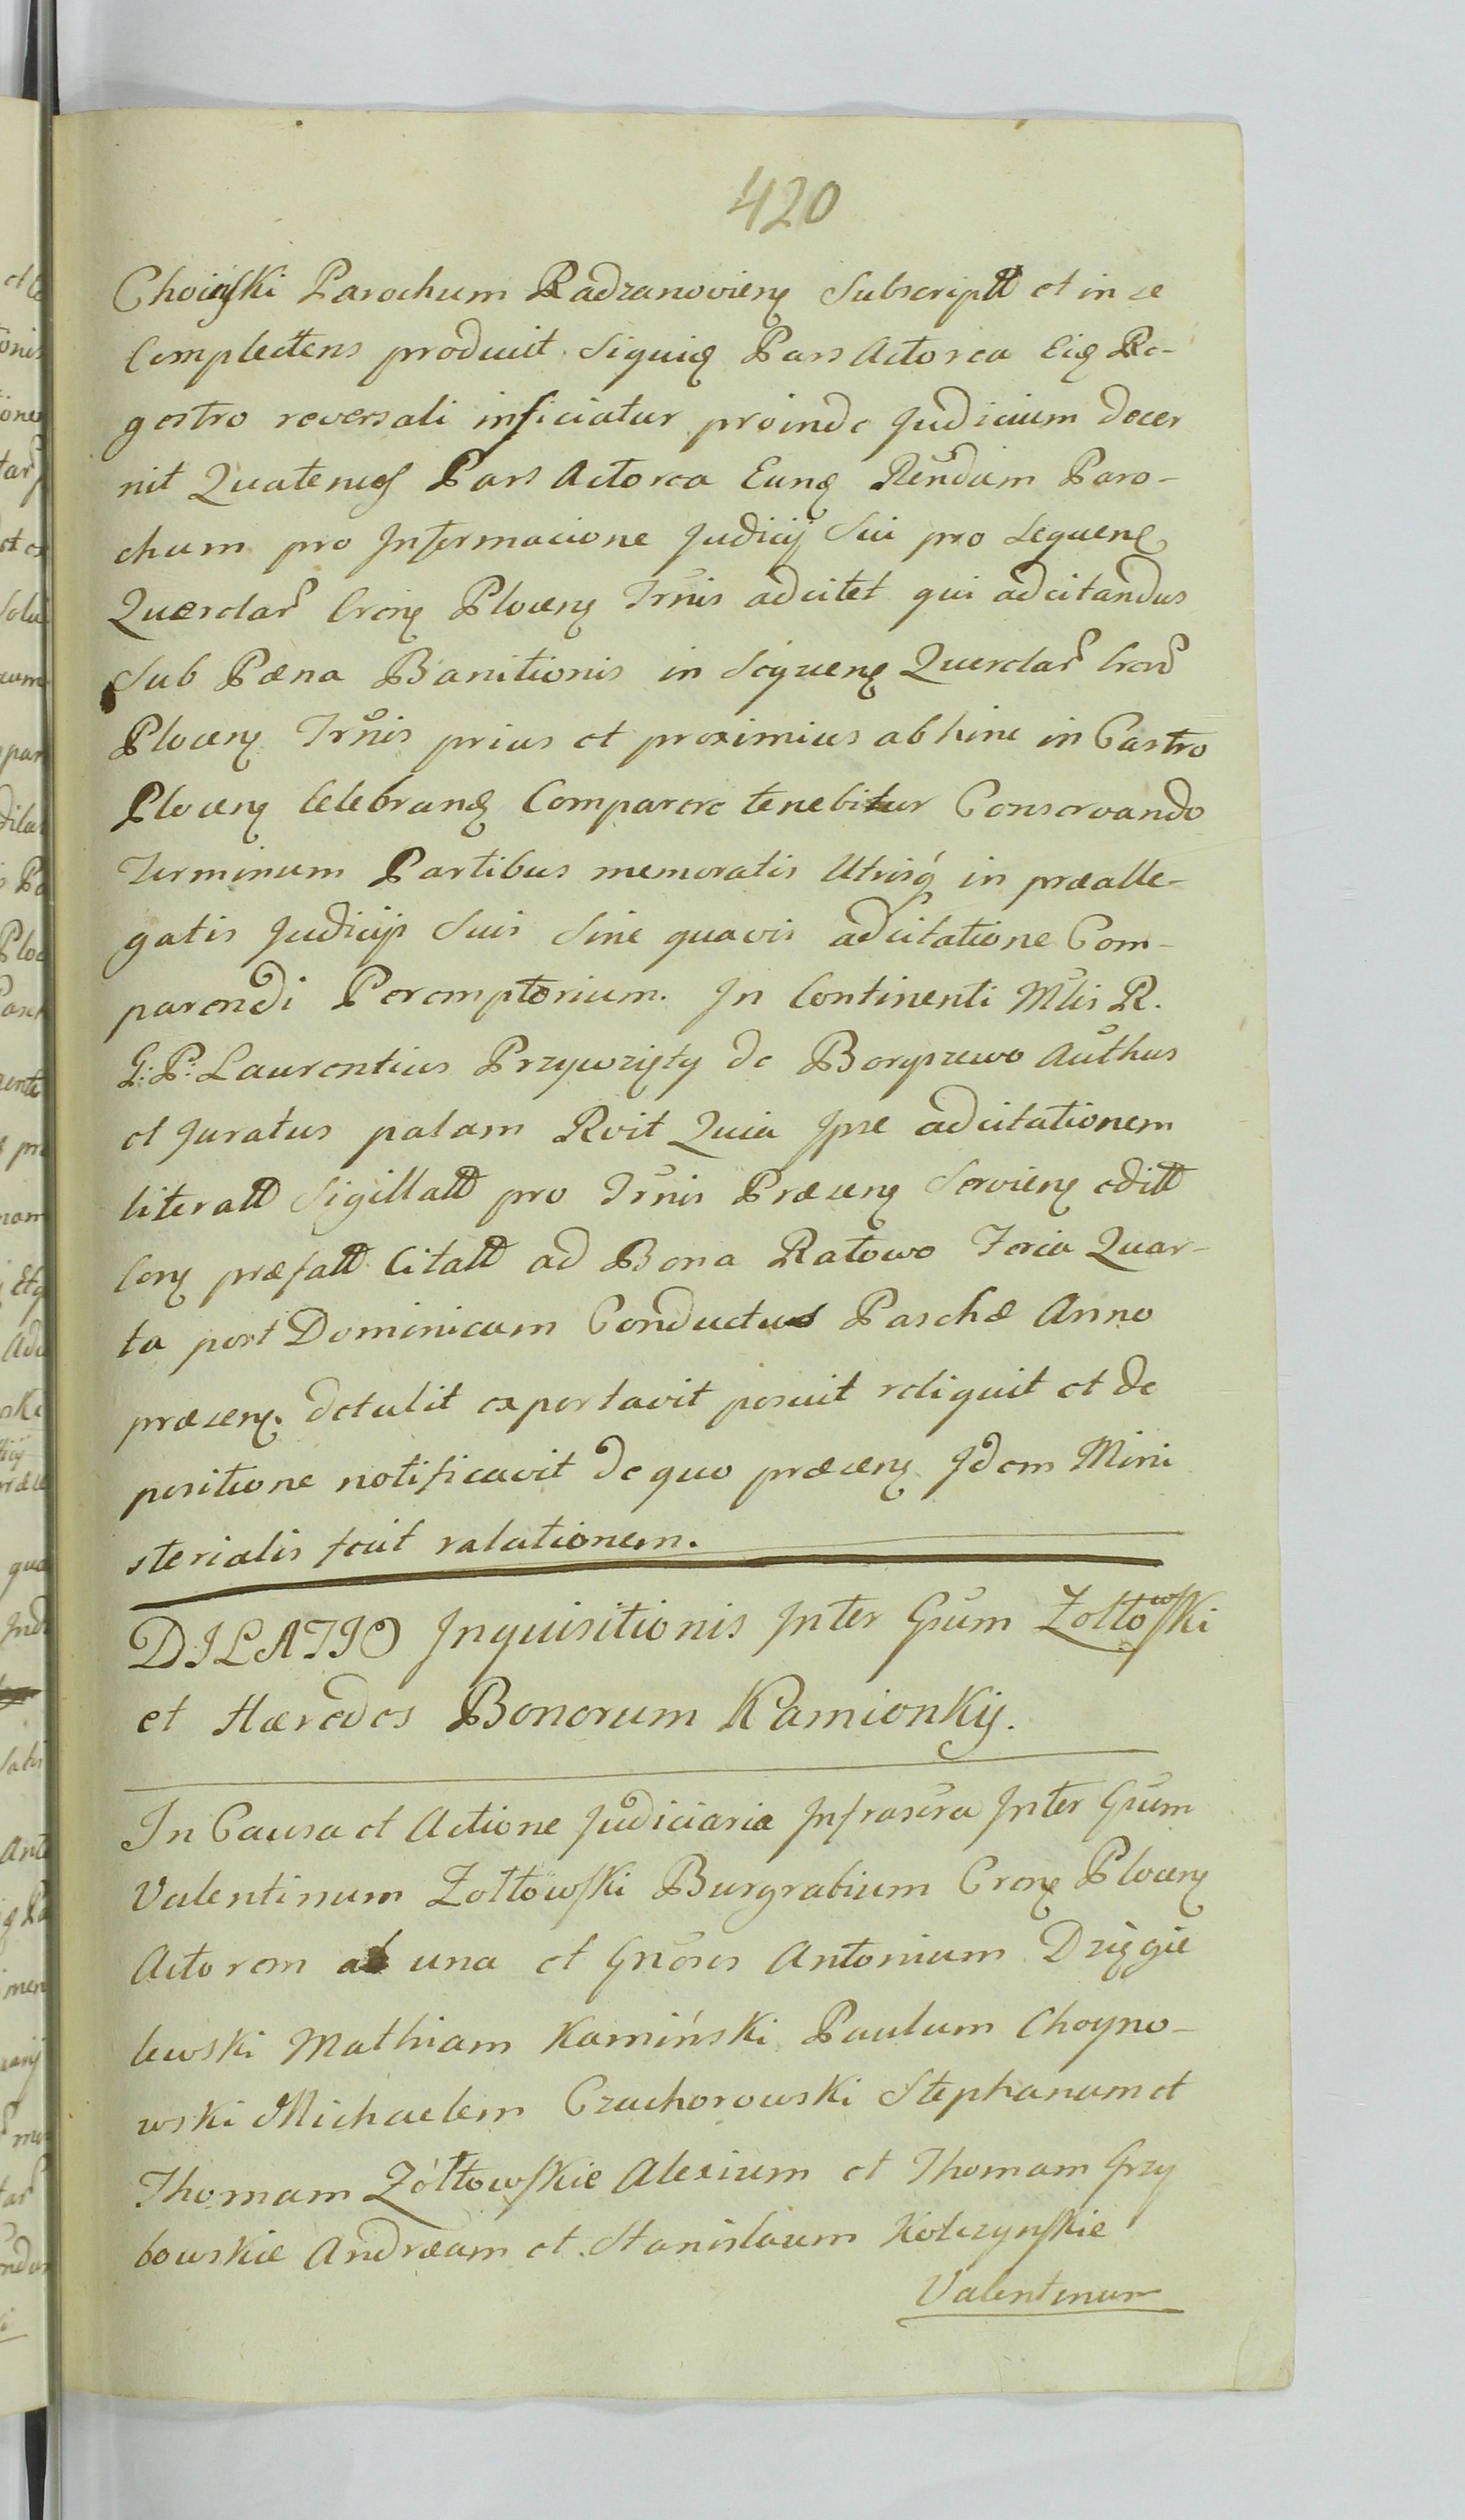 420
Choinski Parochum Radzanoviens Subscriptt et in se
Complectens produxit. Siquid Pars Actorea Eid Re-
gestro reversali inficiatur proinde Judicium decer
nit Quatenus Pars Actorea Eund Rendum Paro-
chum pro Informacione Judicij Sui pro Sequend
Querelar Crens Plocens Trnis adcitet qui adcitandus
Sub Pæna Banitionis in Sequens Querelar Cren
Plocens Trnis prius et proximius abhinc in Castro
Plocens Celebrand Comparere tenebitur Conservando
Terminum Partibus memoratis Utrisq in prealle-
gatis Judicijs Suis Sine quavis adcitatione Com-
parendi Peremptorium. In Continenti Mlis R.
G: P: Laurentius Przywzięty de Boryszewo Authus
et Juratus palam Rvit Quia Ipse adcitationem
literatt Sigillatt pro Trnis Præsens Serviens editt
Cons præfatt Citatt ad Bona Ratowo Feria Quar-
ta post Dominicam Conductus Paschæ Anno
præsens. detulit exportavit posuit reliquit et de
positione notificavit de quo præsens Idem Mini
sterialis fecit ralationem.
DILATIO Inquisitionis Inter Gsum Zołtowski
et Hæredes Bonorum Kamionkij.
In Causa et Actione Judiciaria Infrascra Inter Gsum
Valentinum Zołtowski Burgrabium Crens Plocens
Actorem ab una et Gnosos Antonium Dzięgie
lewski Mathiam Kamiński Paulum Choyno-
wski Michaelem Czachorowski Stephanum et
Thomam Zółtowskie Alexium et Thomam Grzy
bowskie Andream et Stanislaum Kołczynskie
Valentinum